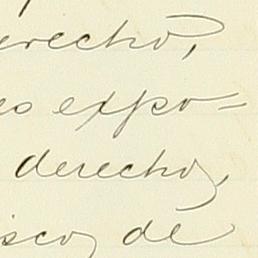 erecho,
es expo=
derecho,
isco, de